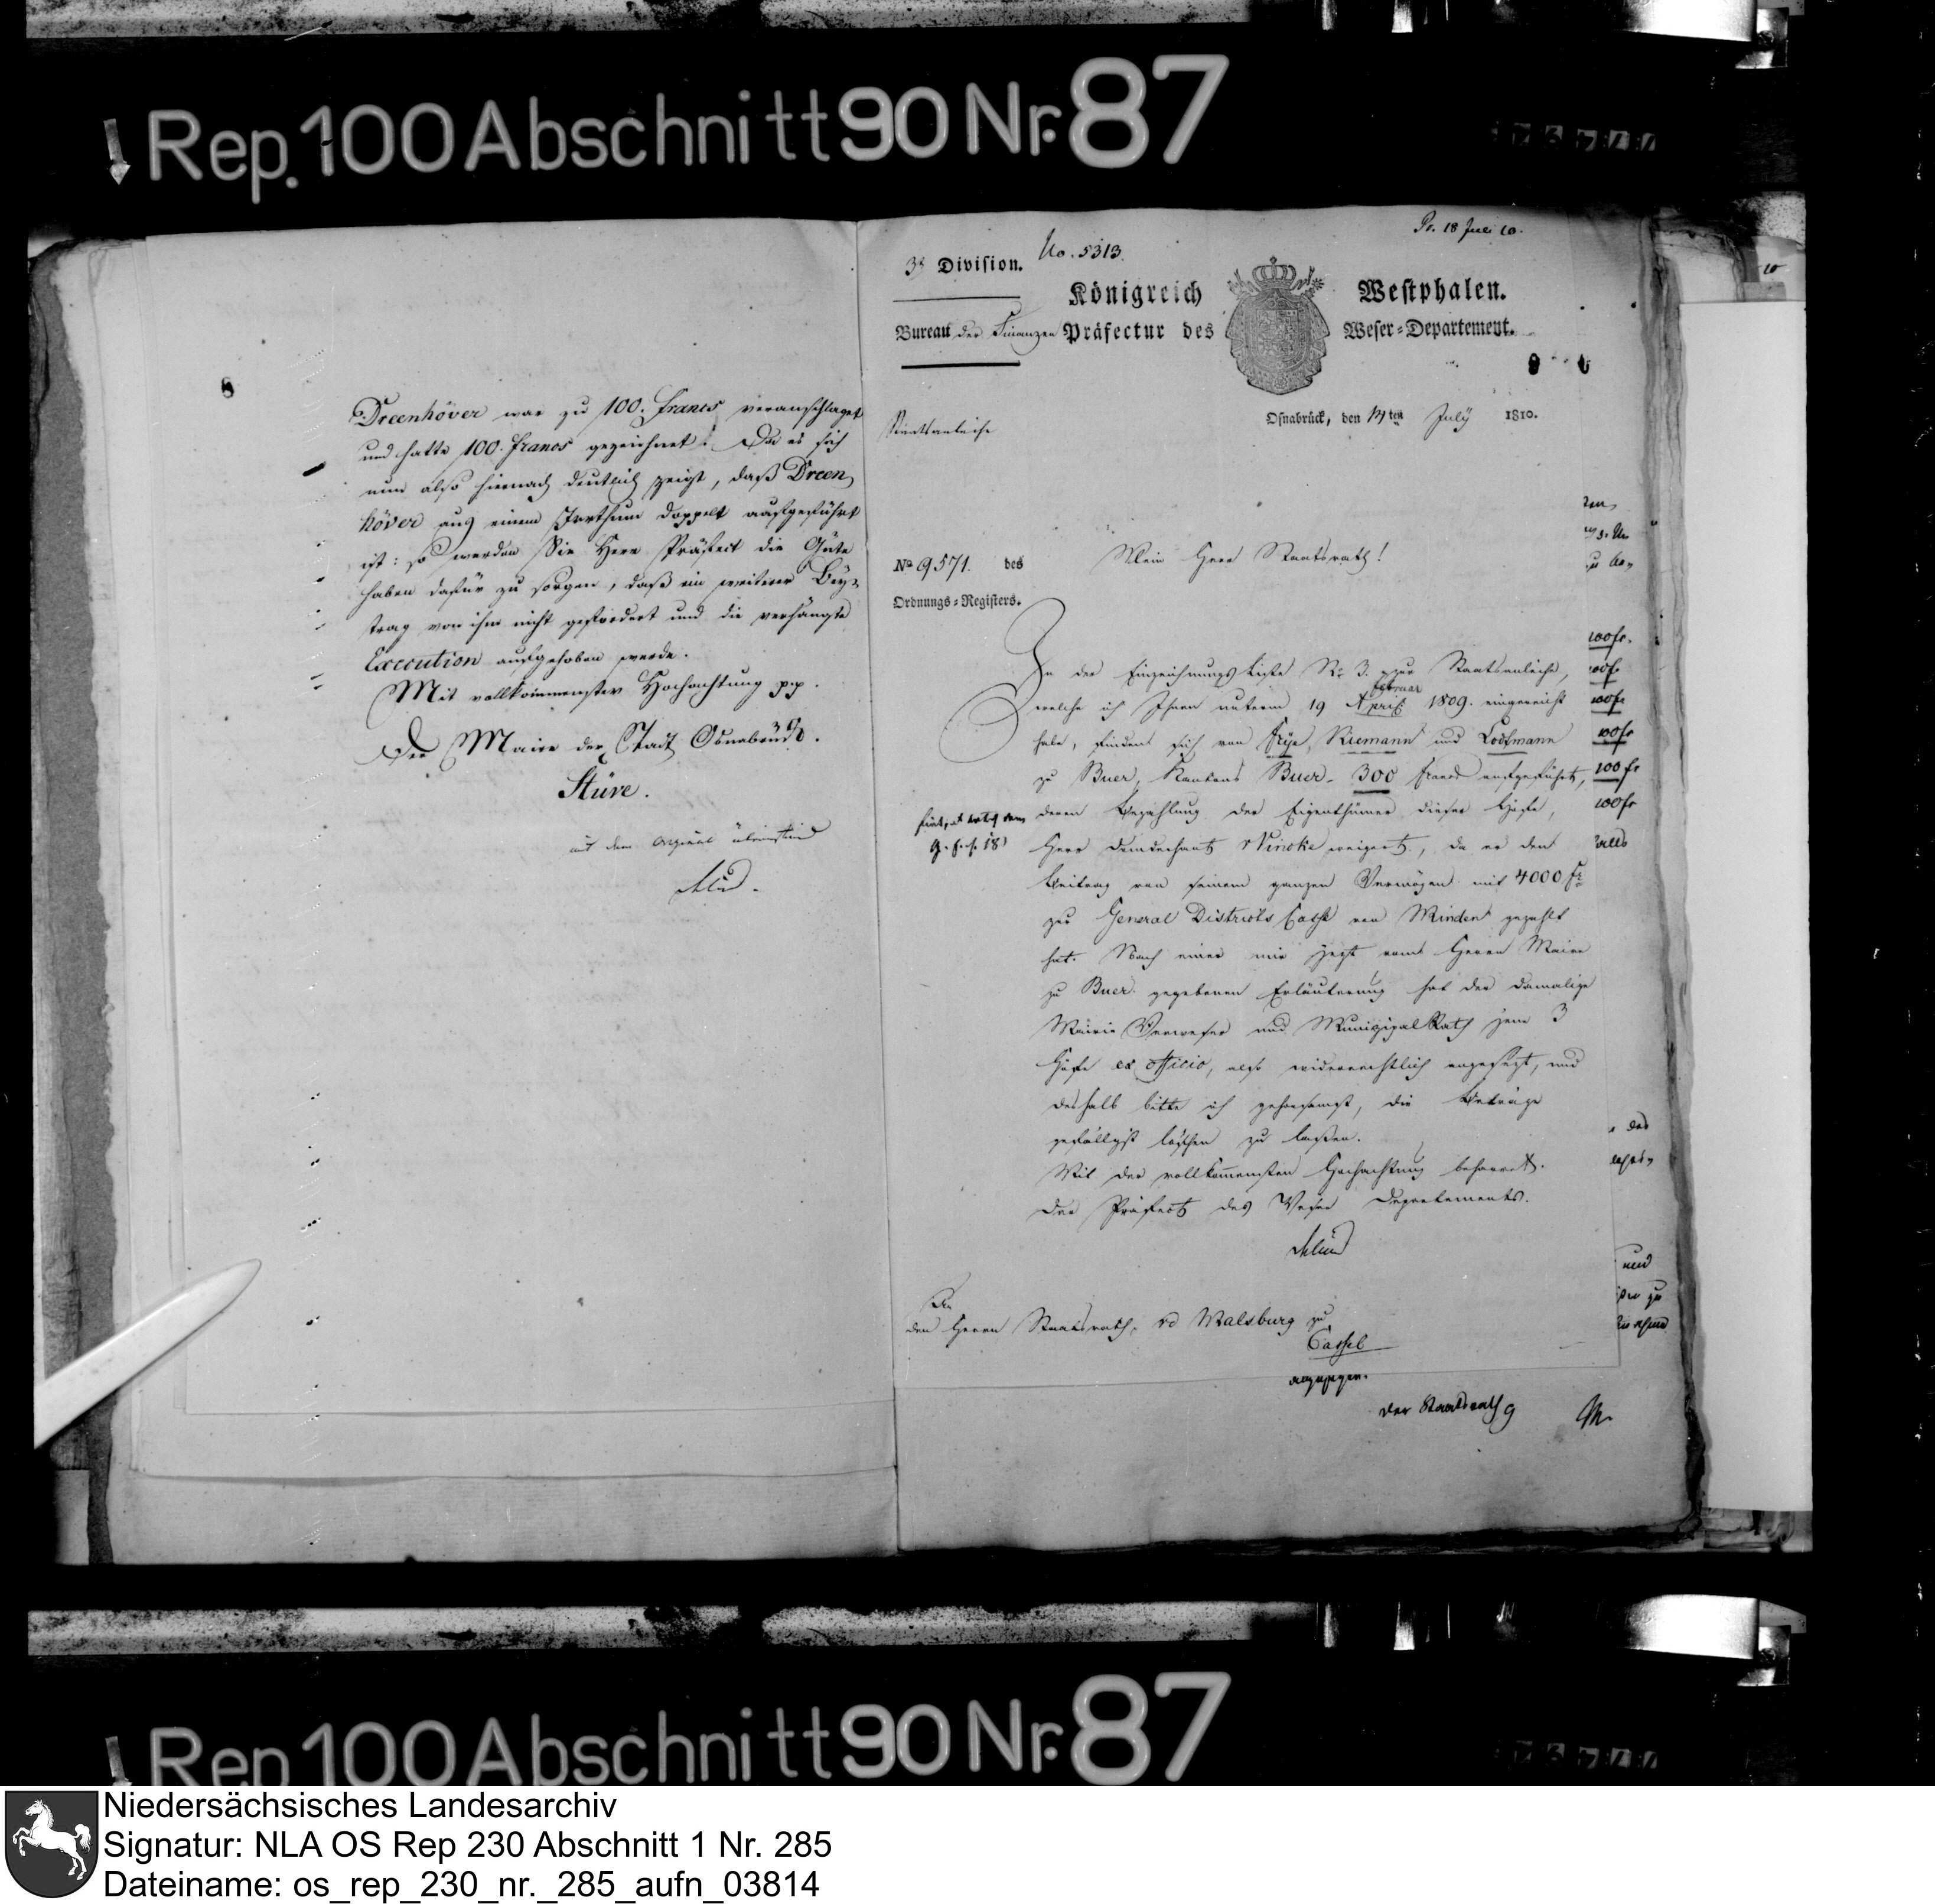 Rep. 100 Abschnitt 90 Nr. 87
Dreenhöver war zu 100. francs veranschlaget
und hatte 100. francs gezeichnet. Da es sich
nun also hiernach deutlich zeigt, daß Dreen,
höver aus einem Irrthum doppelt aufgeführt
ist: so werden Sie Herr Präfect die Güte
haben dafür zu sorgen, daß ein weiterer Bey-
trag von ihm nicht gefordert und die verhängte
Execution aufgehoben werde.
Mit vollkommenster Hochachtung pp.
Der Maire der Stadt Osnabrück.
Stüve.
mit dem Original
Pr. 18 Juli 10.
No. 5313.
3e Division.
Königreich Westphalen.
Bureau der Finanzen Präfectur des Weser-Departement.
Osnabrück, den 14ten July 1810.
Staatsanleihe
Mein Herr Staatsrath!
No 9571. des
Ordnungs-Registers.
In der Einzeichnungs Liste No 3. zur Staatsanleihe,
februar
welche ich Ihnen unterm 19 April 1809. eingereicht
habe, finden sich von Frye, Niemann und Lodtmann
zu Buer, Kantons Buer. 300 francs aufgeführt,
deren Bezahlung der Eigenthümer dieser Höfe,
Herr Domdechant Vincke weigert, da er den
Beitrag von seinem ganzen Vermögen mit 4000 fr
zur General Districts Casse von Minden gezahlt
hat. Nach einer mir jetzt vom Herrn Maire
zu Buer gegebenen Erläuterung hat der damalige
Mairie Verweser und Munizipal Rath jene 3
Höfe ex officio, also widerrechtlich angesetzt, und
deshalb bitte ich gehorsamst, die Beträge
gefälligst löschen zu lassen.
Mit der vollkommensten Hochachtung beharret.
Der Präfect des Weser Departements.
An
den Herrn Staatsrath, vd Malsburg zu
Cassel
der Staatsrath
100 fr.
100 fr
100 fr
100 fr
100 fr
100 fr
und
Rep 100 Abschnitt 90 Nr. 87
Niedersächsisches Landesarchiv
Signatur: NLA OS Rep 230 Abschnitt 1 Nr. 285
Dateiname: os_rep_230_nr._285_aufn_03814